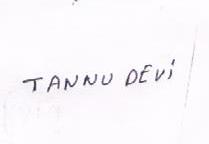 TANNU DEVi